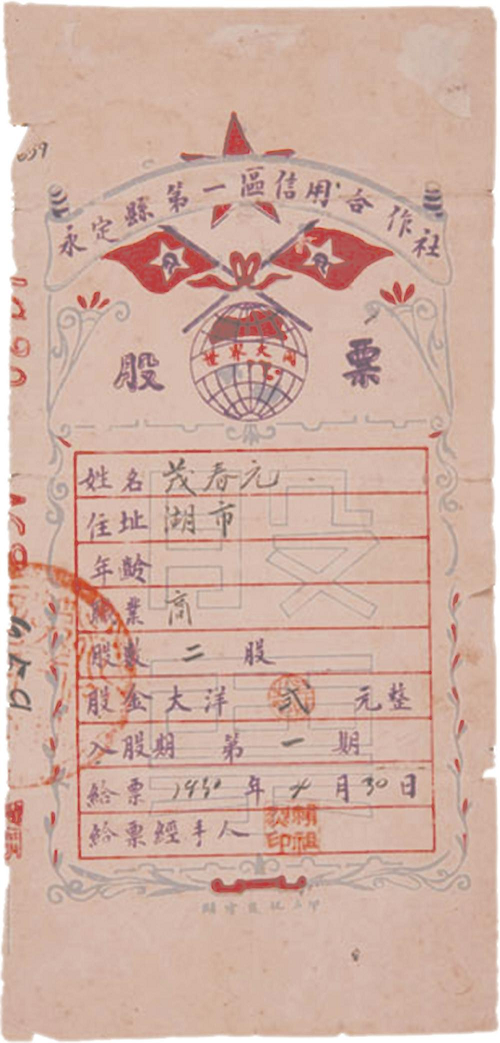 永定縣第一區信用合作社
世界大同
股票
姓名 茂春元
住址 湖市
年齡
職業 商
股數 二 股
股金大洋 弍 元整
入股期 第一期
給票 1930年4月30日
給票經手人